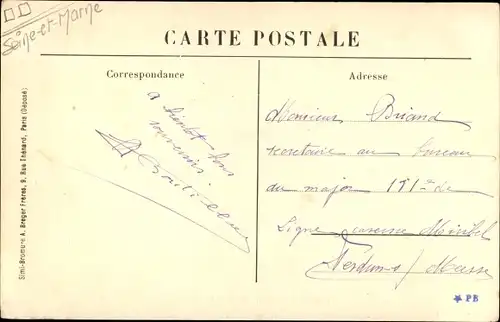 Seine-et-Marne
CARTE POSTALE
Correspondance
Adresse
a bientôt bon
souvenir
Monsieur Briand
secretaire au bureau
du major 151me de
Ligne caserne Miribel
Verdun s/ Meuse
Simi-Bromure A. Breger Frères, 9, Rue Thénard, Paris (Déposé)
PB